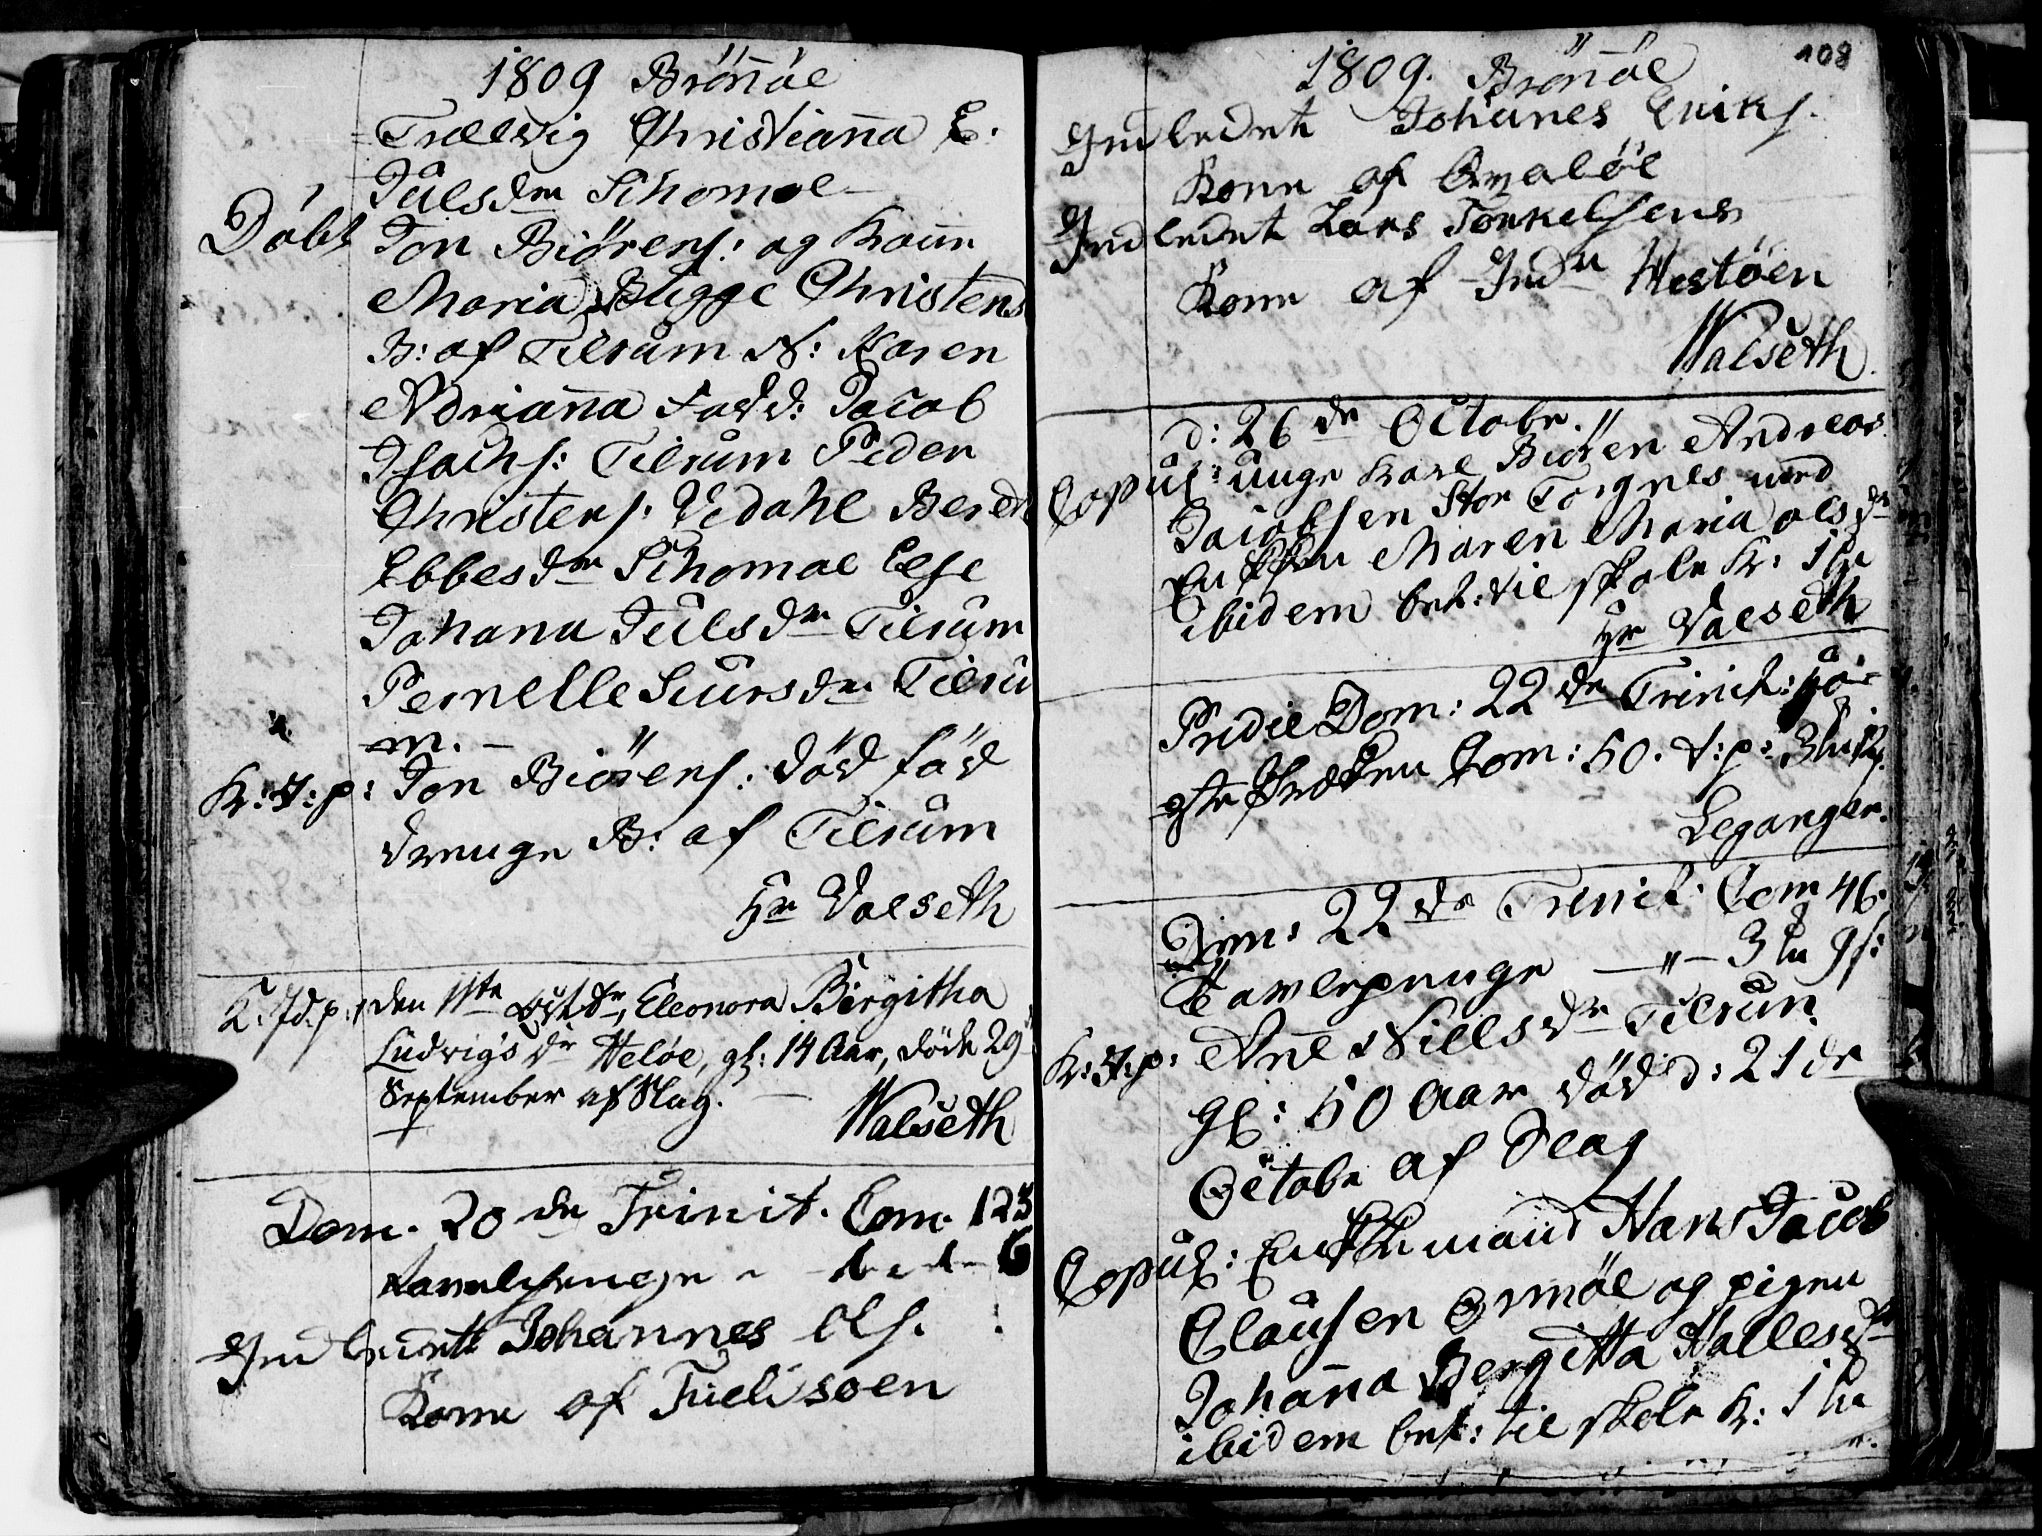 1809 Brönöe
Trælvig Christianna E.
Juls dr Schomoe
Döbt Jon Biörens: og Kone
Maria Bugge Christens
B: af Tilrum N: Karen
Adrianna Fadd: Jacob
Isachs: Tilrum Peder
Christens. Vedahl Bereth
Ebbes dr Schomoe Else
Johana Juls dr Tilrum
Pernelle Siurs dr Tilru
m.
K: J: p: Jon Biörens: död föd
drenge B: af Tilrum
Hr Valseth
K: Jd: p: den 11te Octbr, Eleonora Birgitha
Ludvigs dr Heløe, gl: 14 Aar, døde 29
September af Slag.
Walseth
Dom. 20 de Trinit. Com. 123
Tavlepenge
Indledt Johannes Ols.
Kone af Tuelisøen
108
1809. Brönöe
Indledet Johanes Eriks.
Kone af Qvalöe
Indledet Lars Torkelsens
Kone af Indr Westöen
Walseth
d: 26 de Octobr.
Copul: unge Karl Biören Andreas
Jacobsen Stor Torgnes med
Enken Maren Maria Ols dr
ibidem bet: til skole K: 1
Hr Valseth
Pridie Dom: 22 de Trinit: Hör
gte Com: 50. J: p: 3
Leganger.
Dom: 22 de Trinit: Com 46.
Tavlepenge — " — 3
K: J: p: Ane Niels dr Tilrum.
gl: 50 Aar död d: 21 de
Octobr af Slag
Copul: Enkemand Hans Jacob
Clausen Ormöe og pigen
Johanna Bergitta Halles dr
ibidem bet: til skole K: 1